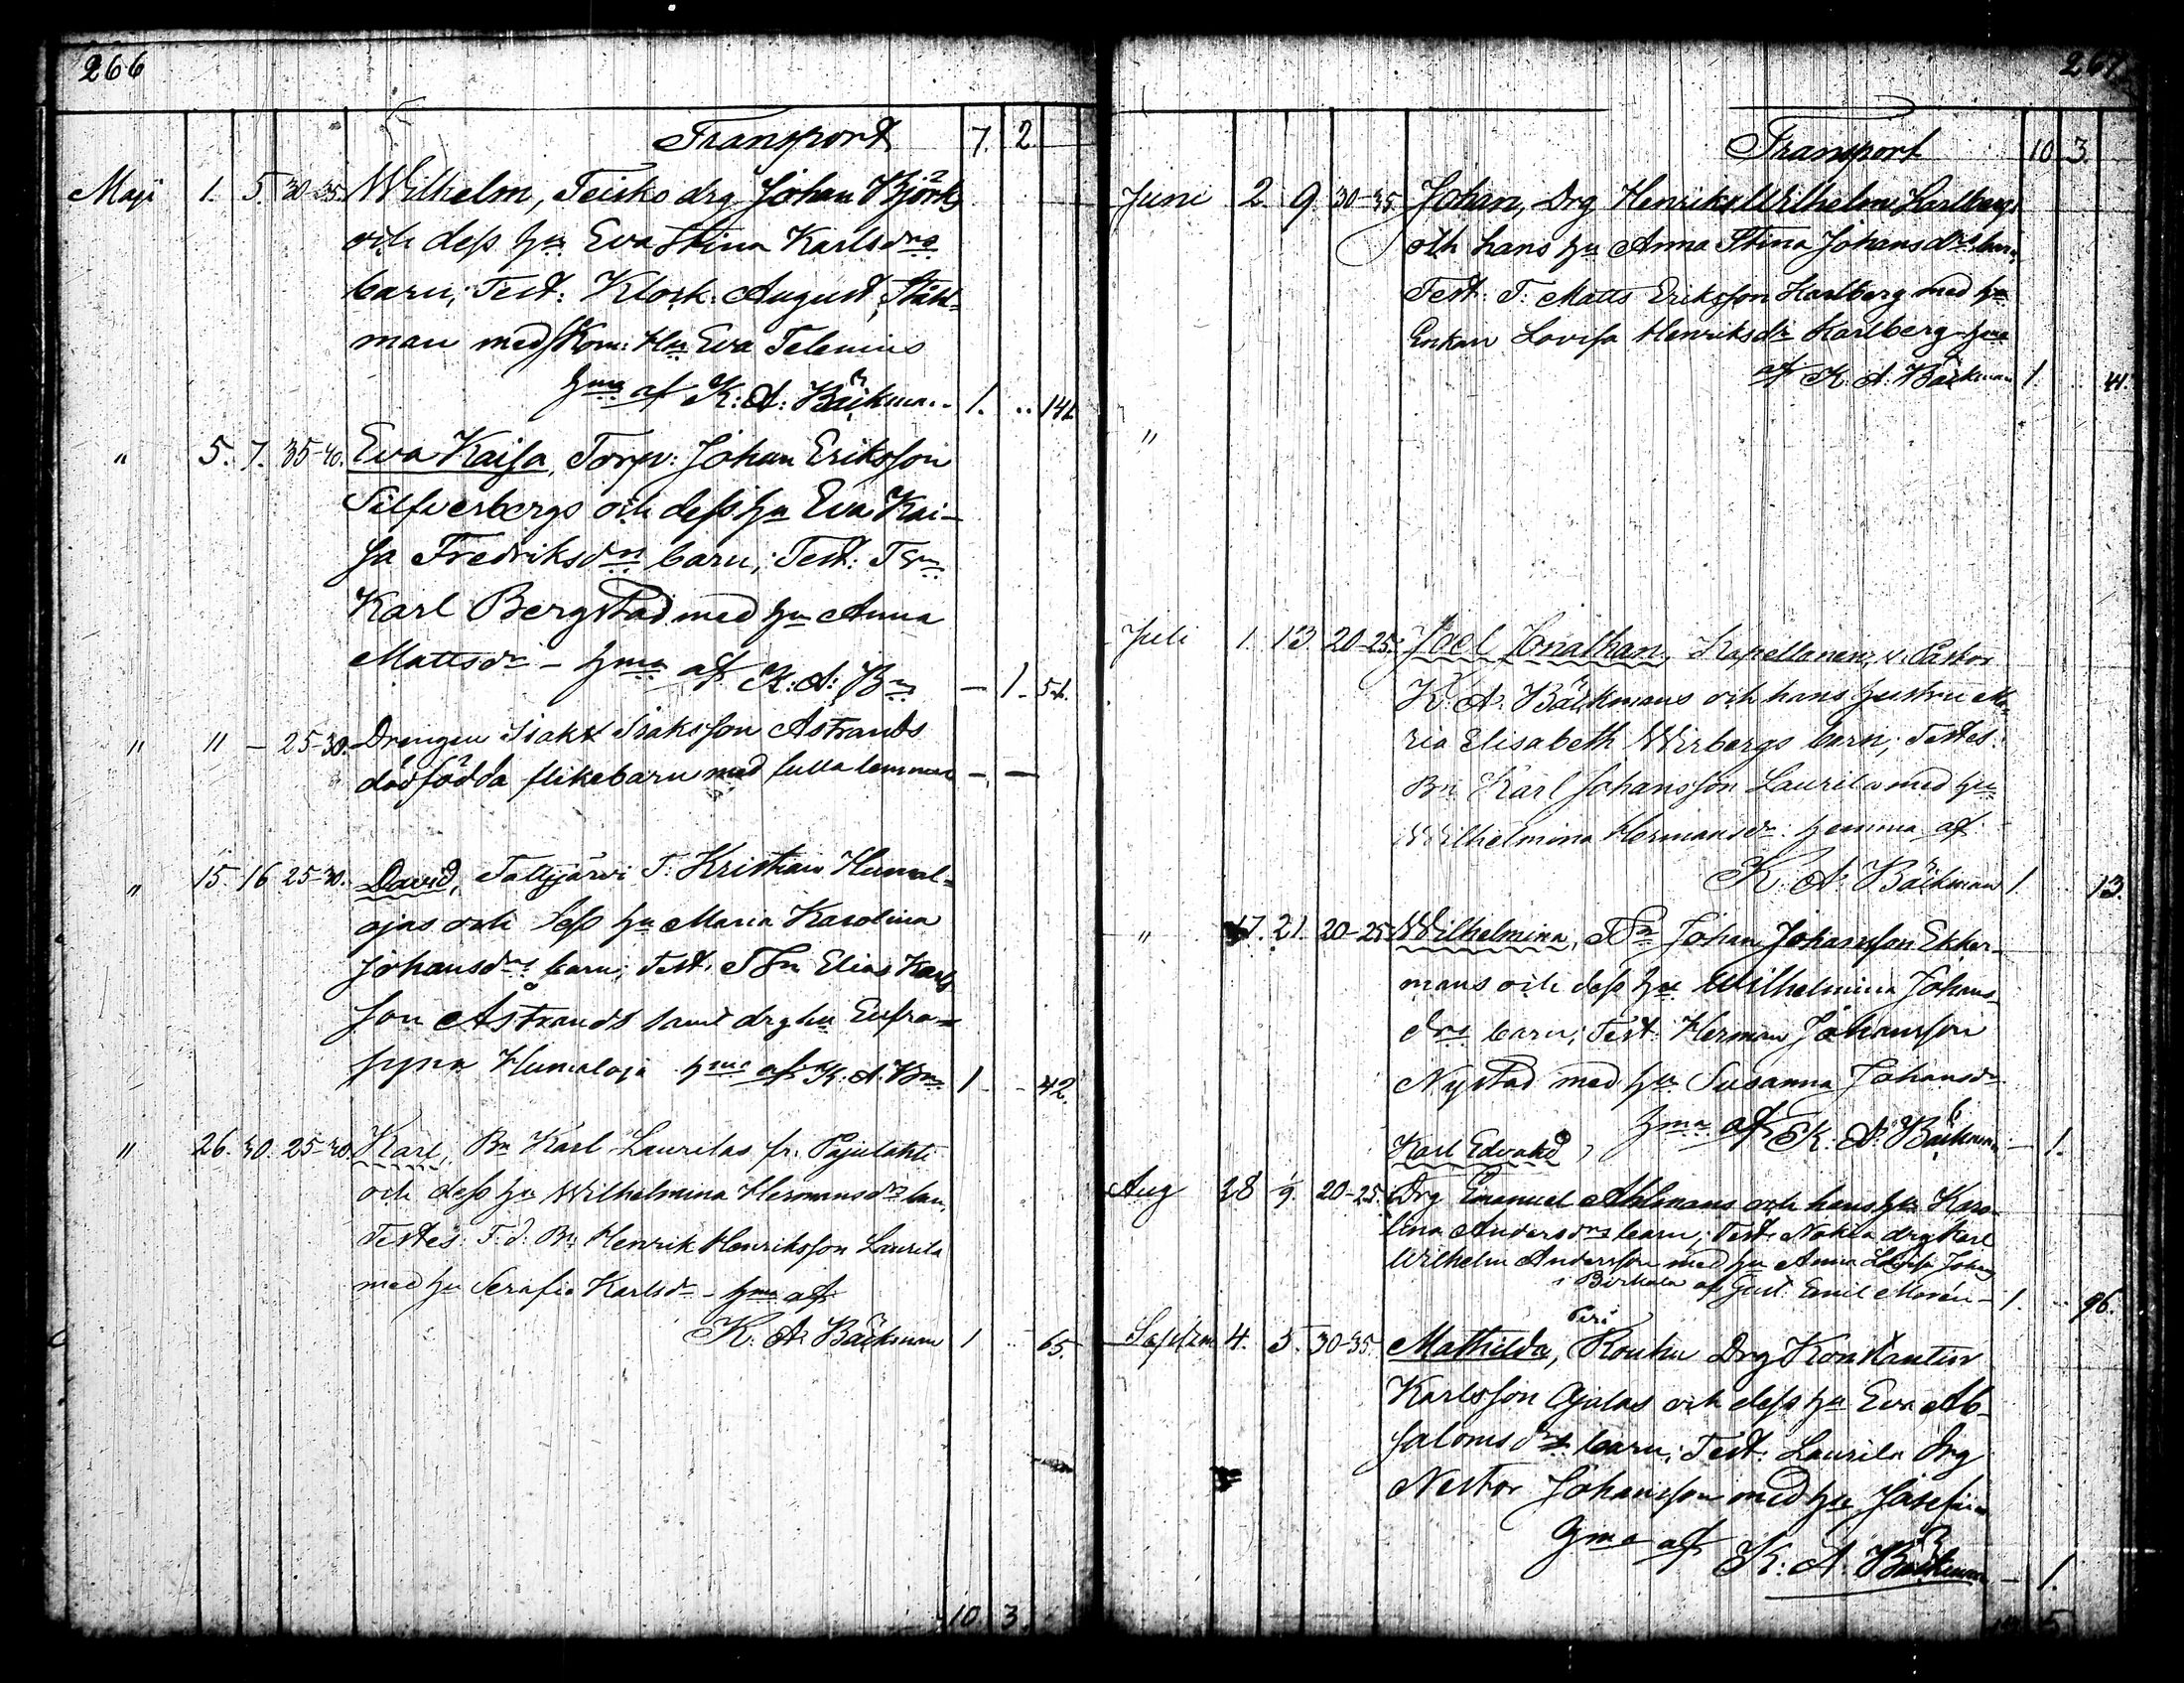 266
Transport 7. 2.
Maji 1. 5. 30-35. Wilhelm, Teisko drg Johan Björks
och dess hu Eva Stina Karlsdrs
barn; Test: Klock. August Ståhl-
man med Kom: Hu Eva Telenius
hma af K: A: Bäckman. 1. 142
" 5. 7. 35-40. Eva Kaisa, Torp: Johan Eriksson
Silfverbergs och dess hu Eva Kai-
sa Fredriksdrs barn; Test:
Karl Bergstad med hu Anna
Mattsdr - hma af K: A: Bn - 1. 54.
" " - 25-30. Drengen Isak Isaksson Åstrands
dödfödda flikebarn med fulla lemmar - -
" 15. 16 25-30. David, Tattijärvi T: Kristian Humal-
ojas och dess hu Maria Karolina
Johansdrs barn; Test. Elias Karls
son Åstrands samt drg hu Eufro-
syna Humaloja hma af K. A. Bn 1 - 42.
" 26. 30. 25-30. Karl, Bn Karl Laurilas fr. Pajulahti
och dess hu Wilhelmina Hermansdrs barn,
Testes: F. d. Bn: Henrik Henriksson Laurila
med hu Serafia Karlsdr - hma af
K. A. Bäckman 1 65.
10. 3.
267
Transport 10 3.
Juni 2. 9. 30-35. Johan, Drg Henrik Wilhelm Karlbergs
och hans hu Anna Stina Johansdrs barn,
Test: T: Matts Eriksson Karlberg med hu
Enkan Lovisa Henriksdr Karlberg hma
af K. A. Bäckman 1. 44.
"
Juli 1. 13 20-25. Joel Jonathan, Kapellanens, v. Pastor
K. A. Bäckmans och hans hustru Ma-
ria Elisabeth Wirbergs barn; Testes:
Bn Karl Johansson Laurila med hu
Wilhelmina Hermansdr: hemma af
K. A. Bäckman 1. 13.
" 17. 21. 20-25. Wilhelmina, Johan Johansson Ekker-
mans och dess hu Wilhelmina Johans-
drs barn; Test: Herman Johansson
Nystad med hu Susanna Johansdr
hma af K. A. Bäckman - 1.
Karl Edvard,
Aug 28 1/9. 20-25. Drg Emanuel Ahlmans och hans hu Karo-
lina Andersdrs barn; Test: Nokia drg Karl
Wilhelm Andersson med hu Anna Lovisa Johans
i Birkala af Gust. Emil Morén - 1. 96.
Siri
Septem 4. 5. 30-35. Mathilda, Rouhu Drg Konstantin
Karlsson Ojalas och dess hu Eva Ab-
salomsdrs barn; Test: Laurila drg
Nestor Johansson med hu Josefin
hma af K. A. Bäckman - 1.
5